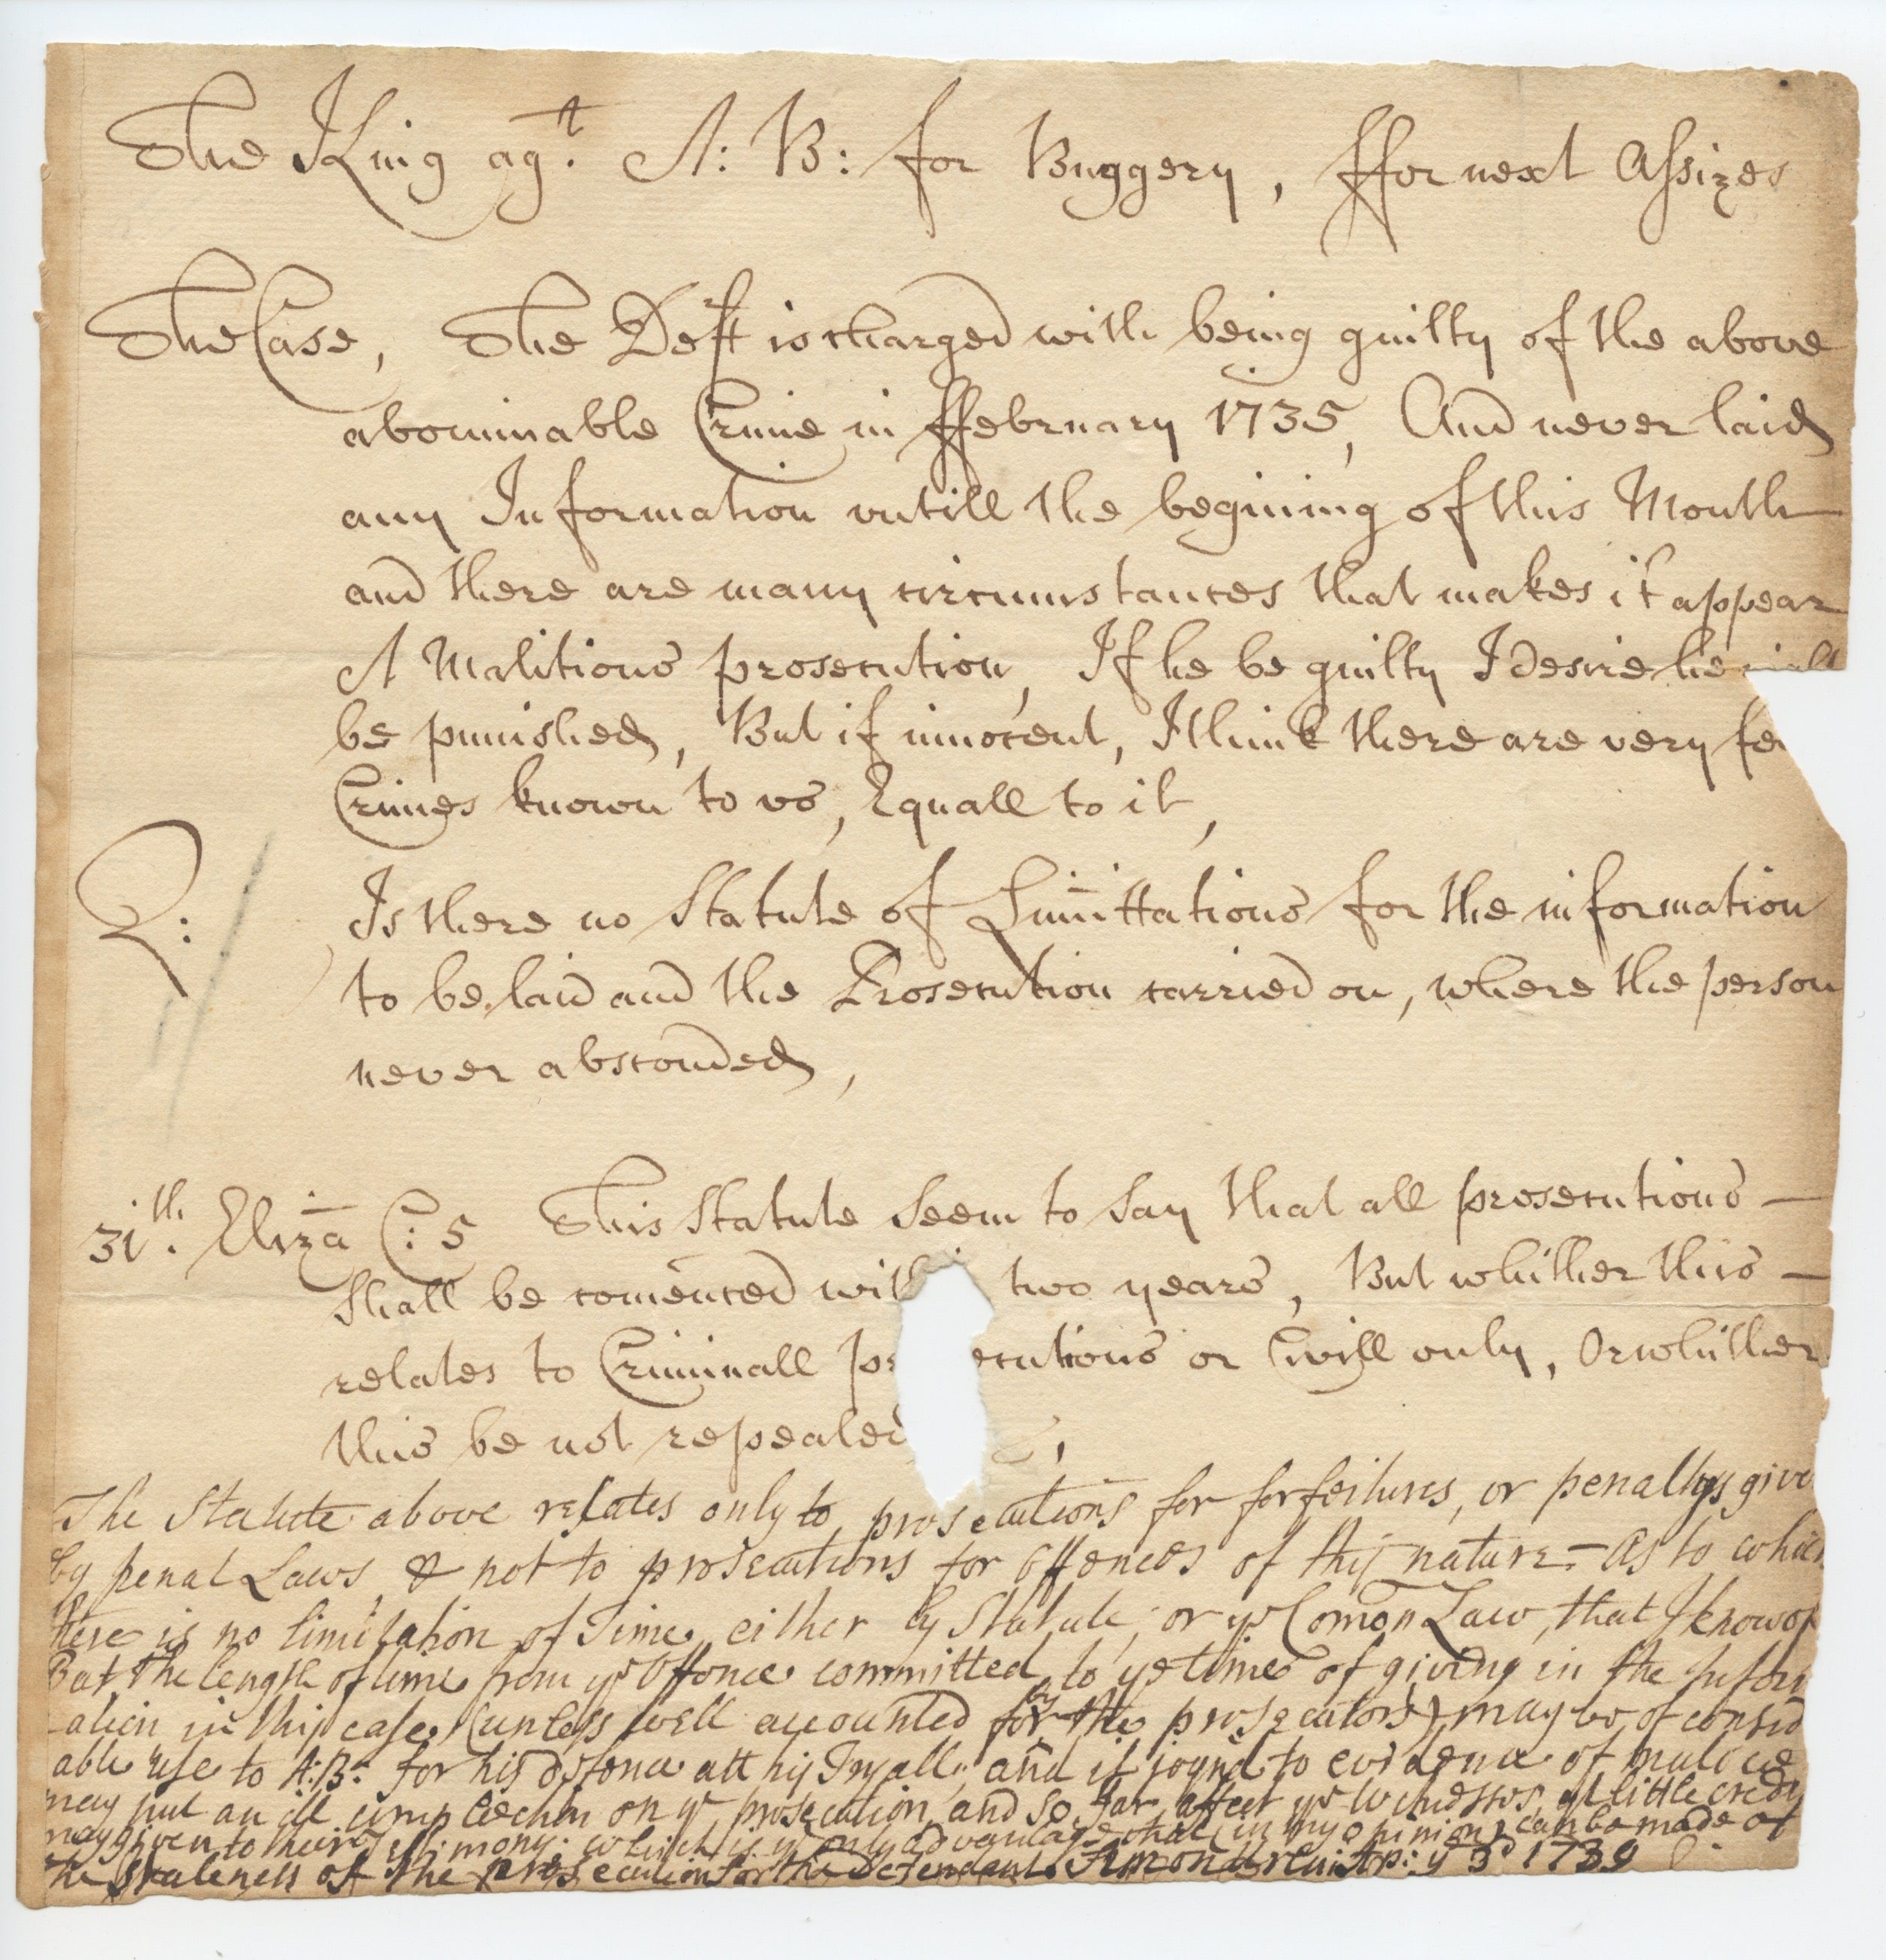 The King agt. A: B: for Buggery, ffor next Assizes
The Case, The Deft is charged with being guilty of the above
abominable Crime in ffebruary 1735, And never laid
any Information untill the begining of this Month
and there are many circumstances that makes it appear
A Malitious prosecution, If he be guilty I desire he
be punished, But if innocent, I think there are very fe
Crimes known to us, Equall to it,
Q: Is there no Statute of Limittations for the information
to be laid and the Prosecution carried on, where the person
never absconded,
31th. Eliza C: 5 This Statute Seem to Say that all prosecutions —
Shall be comenced with two years, But whither this —
relates to Criminall pr ecutions or Civill only, Or whither
this be not repealed
The Statute above relates only to prosecutions for forfeitures, or penaltys give
by penal Laws, & not to prosecutions for offences of this nature - As to which
there is no limitation of Time, either by Statute, or ye Comon Law, that I know of
But the length of time from ye Offence committed to ye time of giving in the Inform
-ation in this case, (unless well accounted for by the prosecutors) may be of consid
able use to A:B: for his defence att his Tryall; and if joyn'd to evidence of malice
may put an ill complection on ye prosecution, and so far affect ye Witnesses, yt little credit
may given to their testimony: which is ye only advantage that (in my opinion) can be made of
the staleness of the prosecution for the Defendant. ye 3d 1739